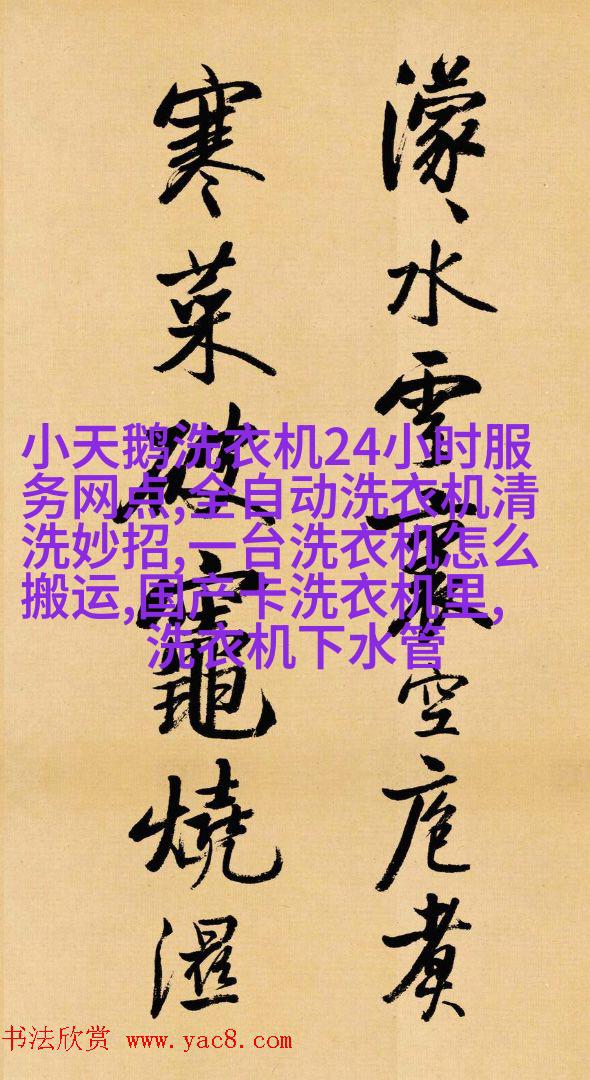 濛、水雲裏空庖煮
寒菜破竈燒濕
小天鹅洗衣机24小时服
务网点,全自动洗衣机清
洗妙招,一台洗衣机怎么
搬运,国产卡洗衣机里,
洗衣机下水管
书法欣赏 www.yac8.com